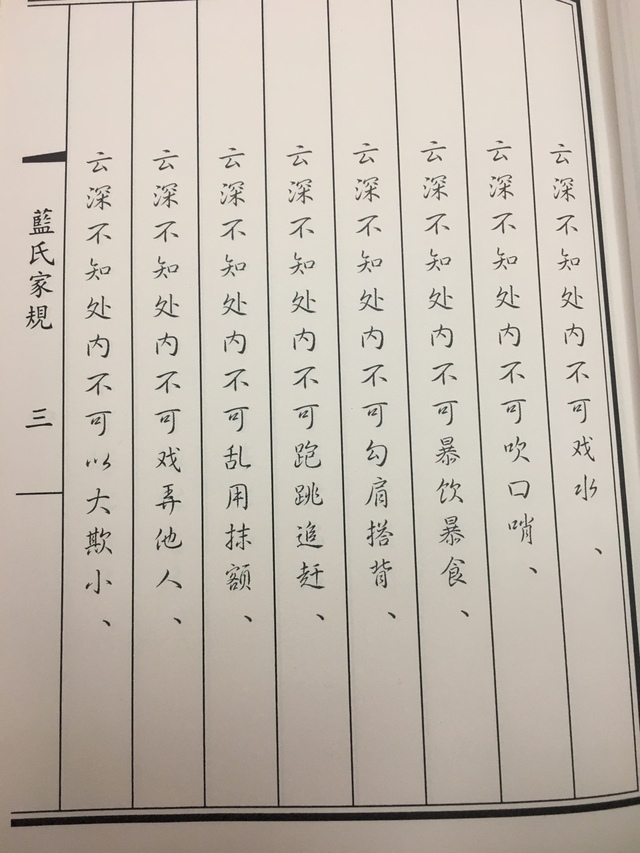 云深不知处内不可戏水、
云深不知处内不可吹口哨、
云深不知处内不可暴饮暴食、
云深不知处内不可勾肩搭背、
云深不知处内不可跑跳追赶、
云深不知处内不可乱用抹额、
云深不知处内不可戏弄他人、
云深不知处内不可以大欺小、
藍氏家規
三